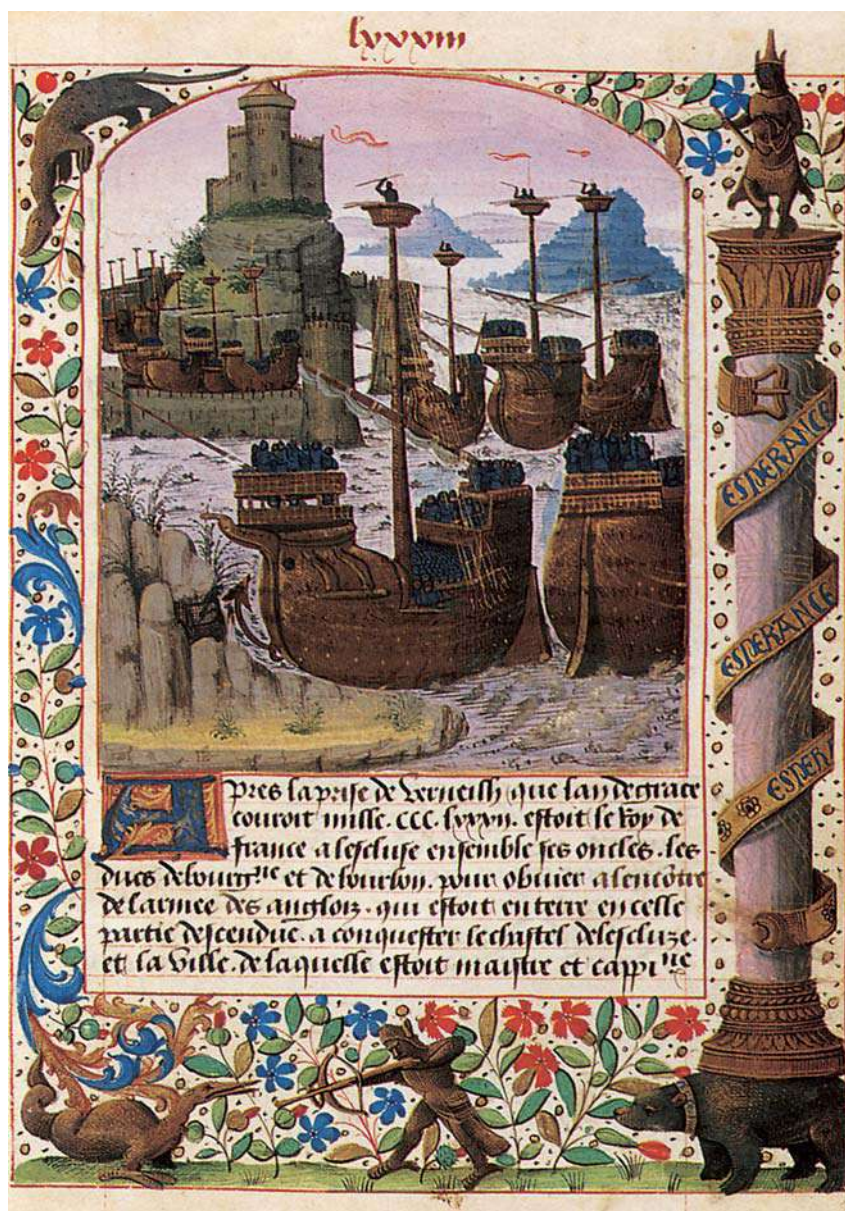 lxxxiii
ESPERANCE
ESPERANCE
ESPER
Apres la prise de Verneilh que lan de grace
couroit mille. CCC. lxxxii. estoit le Roy de
france a lescluse ensemble ses oncles. les
ducs de bourgne et de bourbon. pour obuier a lencōtre
de larmee des anglois. qui estoit en terre en celle
partie descendue. a conquester le chastel de lescluze.
et la Ville. de laquelle estoit maistre et cappine